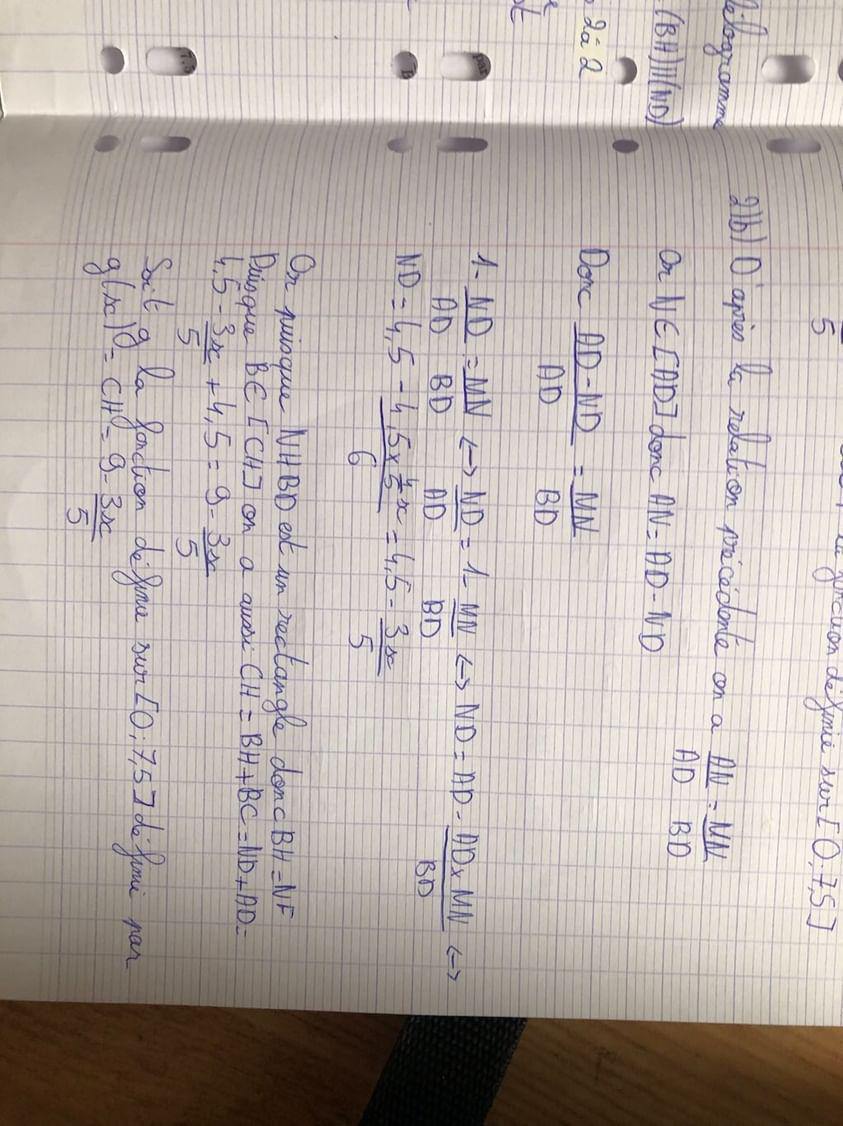 2)b) D'après la relation précédente on a AN/AD = MN/BD
Or N∈[AD] donc AN = AD - ND
Donc AD-ND/AD = MN/BD
1 - ND/AD = MN/BD <-> ND/AD = 1 - MN/BD <-> ND = AD - AD×MN/BD <->
ND = 4,5 - 4,5×4/5x/6 = 4,5 - 3x/5
Or puisque NHBD est un rectangle donc BH = NF
Puisque B∈[CH] on a aussi CH = BH + BC = ND + AD =
4,5 - 3x/5 + 4,5 = 9 - 3x/5
Soit g la fonction définie sur [0;7,5] définie par
g(x) = CH = 9 - 3x/5
5
la fonction définie sur [0;7,5]
(BH)||(ND)
2 à 2